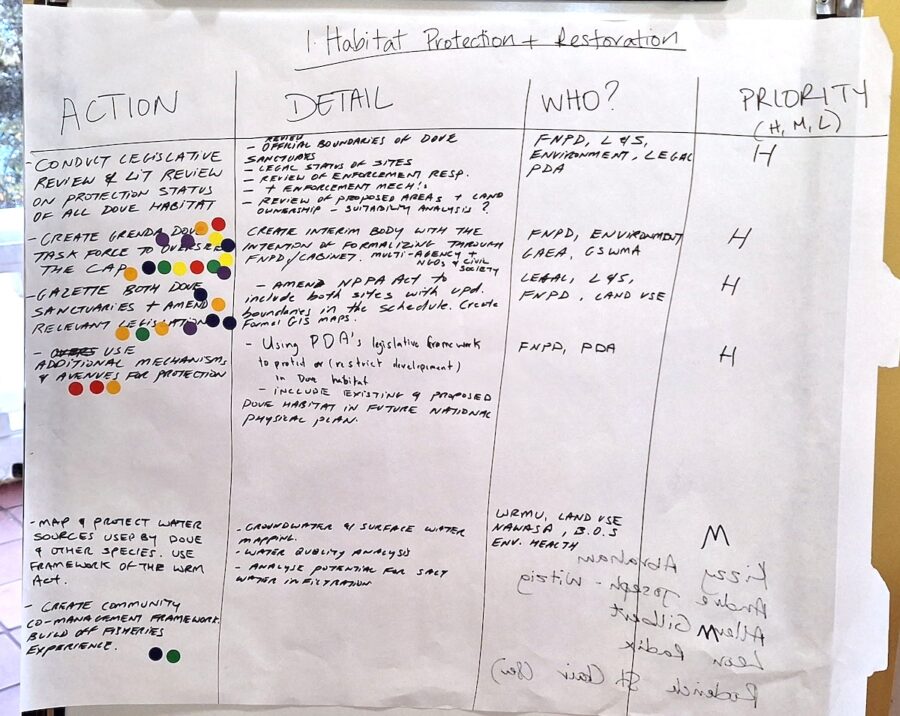 1. Habitat Protection + Restoration
ACTION
DETAIL
WHO?
PRIORITY
(H, M, L)
- CONDUCT LEGISLATIVE
REVIEW & LIT REVIEW
ON PROTECTION STATUS
OF ALL DOVE HABITAT
REVIEW
- OFFICIAL BOUNDARIES OF DOVE
SANCTUARIES
- LEGAL STATUS OF SITES
- REVIEW OF ENFORCEMENT RESP.
- + ENFORCEMENT MECH!s
- REVIEW OF PROPOSED AREAS + LAND
OWNERSHIP - SUITABILITY ANALYSIS?
FNPD, L&S,
ENVIRONMENT, LEGAL
PDA
H
- CREATE GRENDA DOVE
TASK FORCE TO OVERSEE
THE CAP
CREATE INTERIM BODY WITH THE
INTENTION OF FORMALIZING THROUGH
FNPD/CABINET. MULTI-AGENCY +
NGOs & CIVIL
SOCIETY
FNPD, ENVIRONMENT
GAEA, GSWMA
H
- GAZETTE BOTH DOVE
SANCTUARIES + AMEND
RELEVANT LEGISLATION
- AMEND NPPA ACT to
include both sites with upd.
boundaries in the schedule. Create
formal GIS maps.
LEGAL, L&S,
FNPD, LAND USE
H
- USE
ADDITIONAL MECHANISMS
& AVENUES FOR PROTECTION
- Using PDA's legislative framework
to protect or (restrict development)
in Dove habitat
- INCLUDE EXISTING & PROPOSED
DOVE HABITAT IN FUTURE NATIONAL
PHYSICAL PLAN.
FNPD, PDA
H
- MAP & PROTECT WATER
SOURCES USED BY DOVE
& OTHER SPECIES. USE
FRAMEWORK OF THE WRM
ACT.
- GROUNDWATER & SURFACE WATER
MAPPING.
- WATER QUALITY ANALYSIS
- ANALYSE POTENTIAL FOR SALT
WATER INFILTRATION
WRMU, LAND USE
NAWASA, B.O.S
ENV. HEALTH
M
- CREATE COMMUNITY
CO-MANAGEMENT FRAMEWORK.
BUILD OFF FISHERIES
EXPERIENCE.
M
Kizzy Abraham
Andre Joseph-Witzig
Allen Gilbert
Leon Radix
Roderick St. Clair